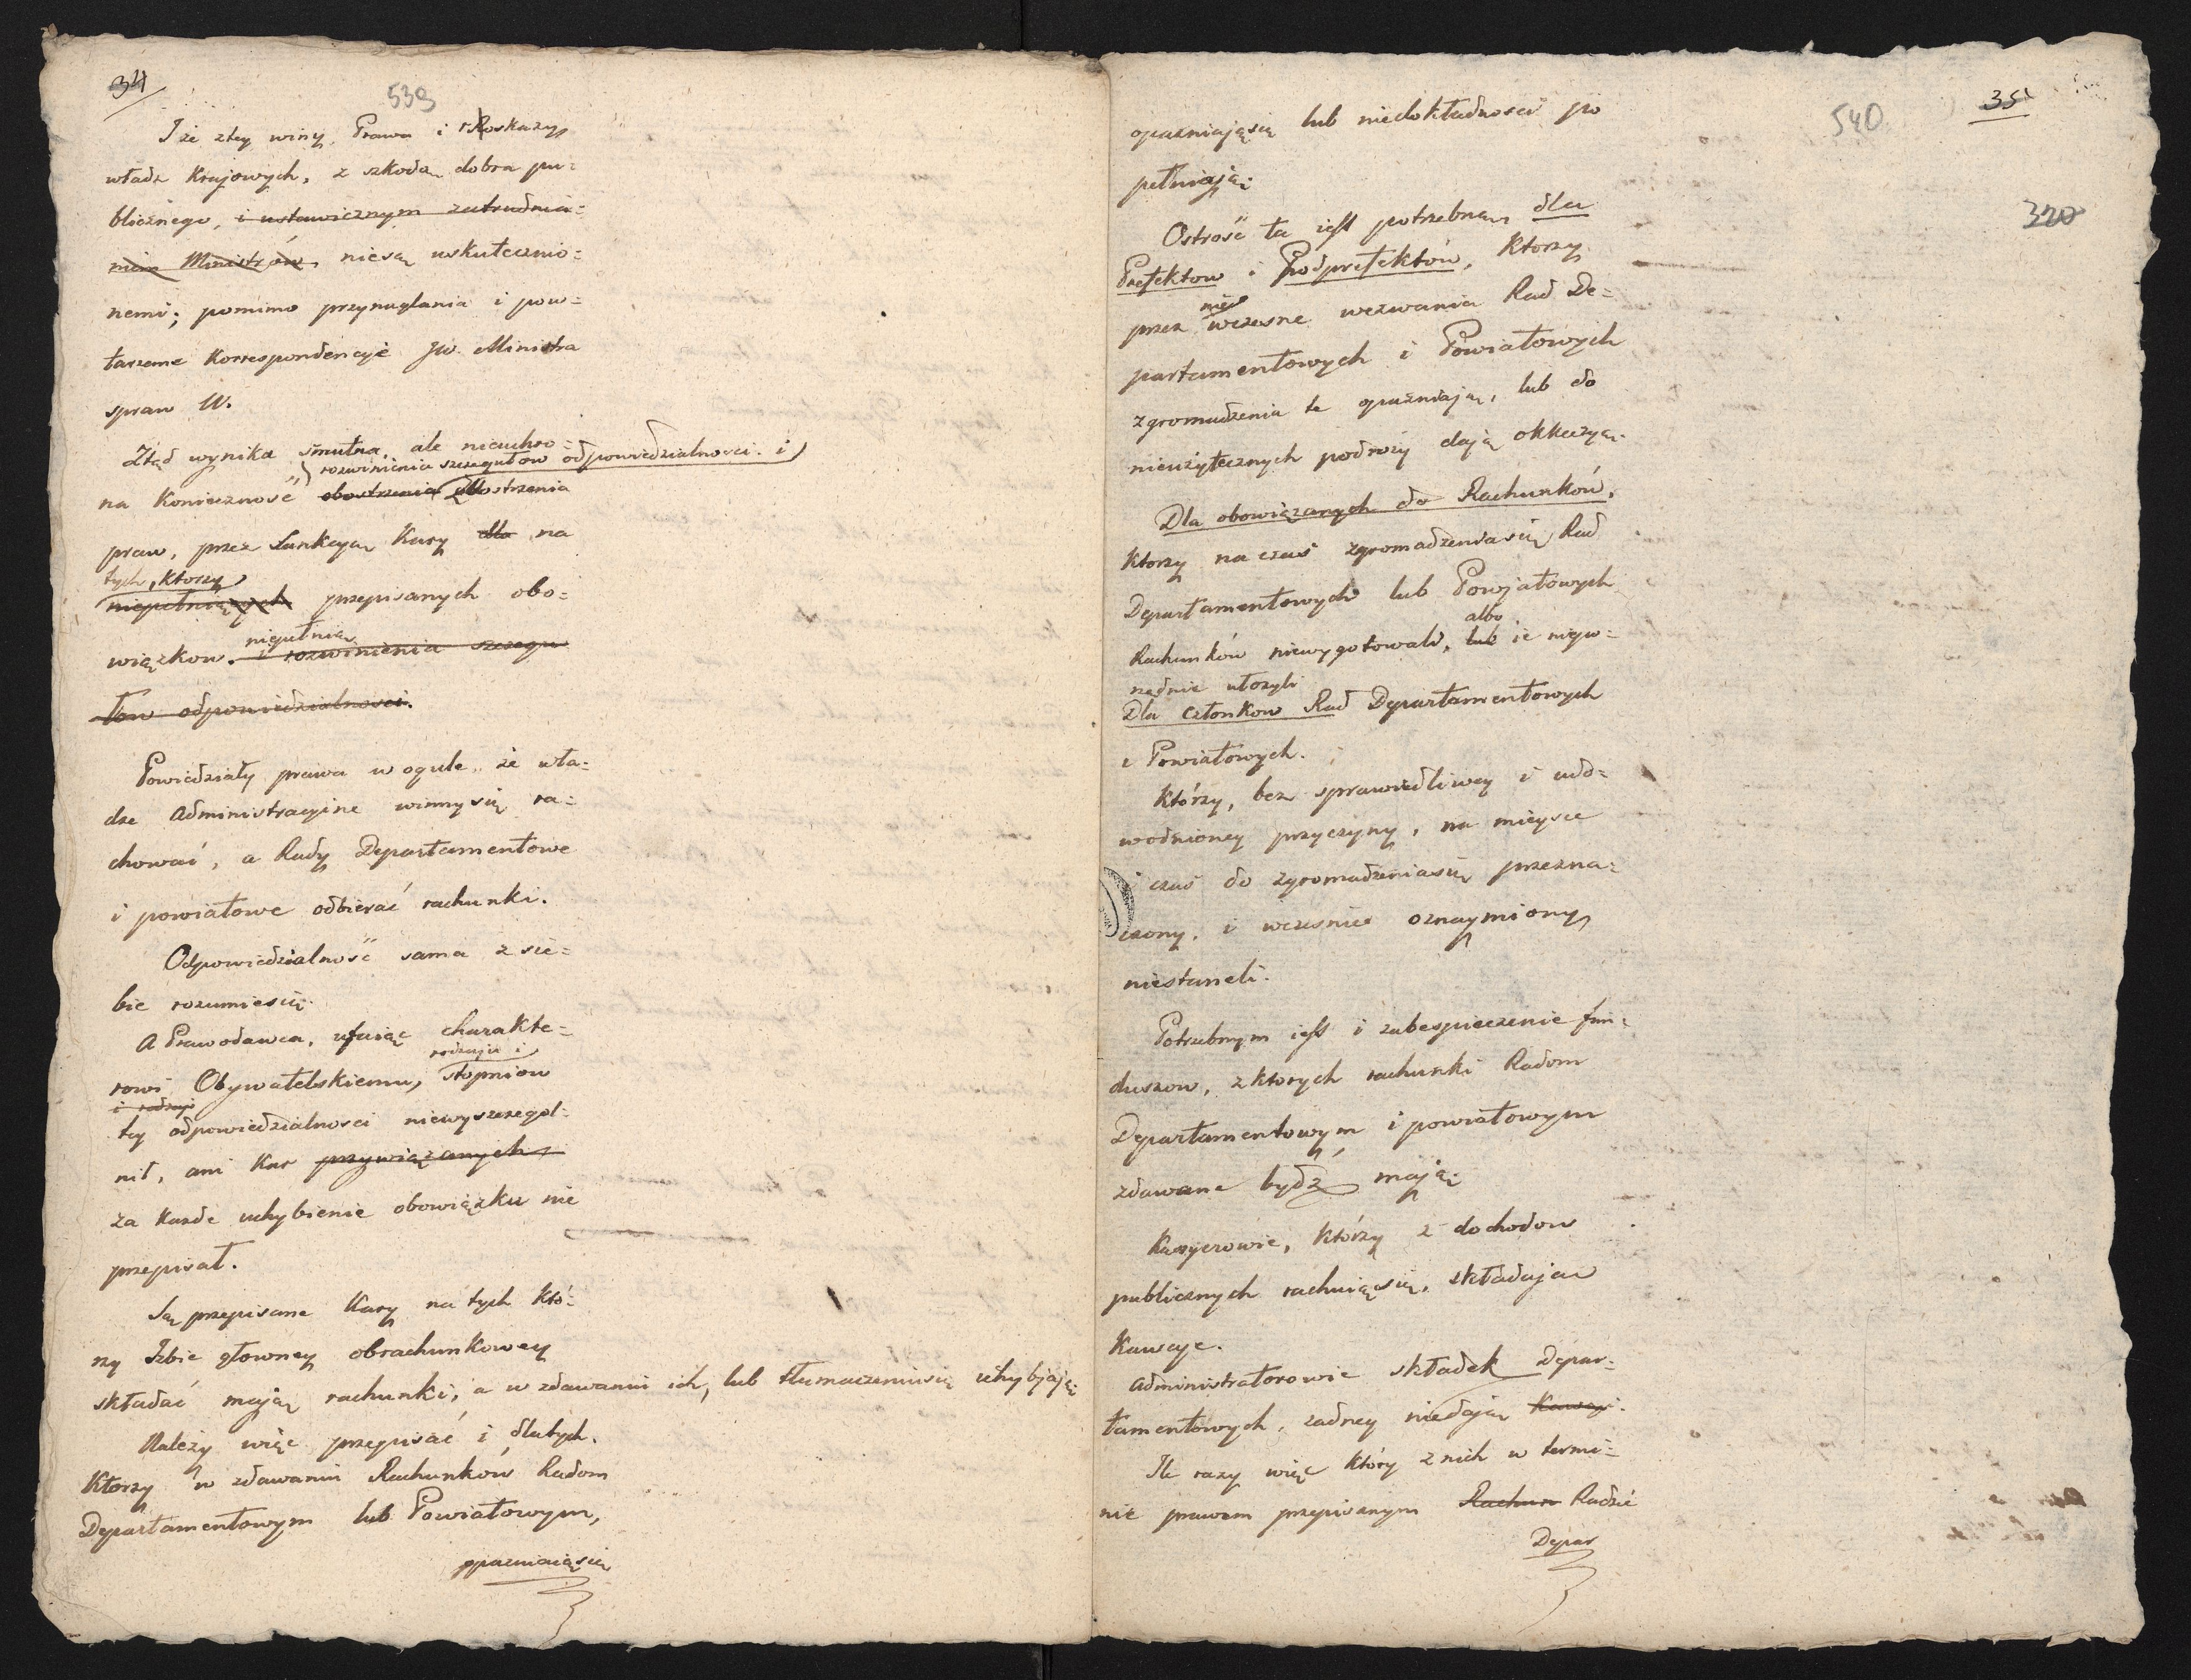 34
539
I że z tey winy, Prawa i Roskazy
władz Krajowych, z szkodą dobra pu=
blicznego, i ustawicznym zatrudnia=
niem Ministrów, niesą uskuteczmio=
nemi; pomimo przynaglania i pow=
tarzane Korrespondencje JW. Ministra
spraw W.
Ztąd wynika smutna, ale nieuchro=
rozwinienia szczegułow odpowiedzialnosci. i
na Konieczność obostrzenia obostrzenia
praw, przez Sankcyą Kary dla na
tych, ktorzy
niepełniących przepisanych obo=
niepełnią
wiązkow. i rozwinienia szczegu
łow odpowiedzialnosci.
Powiedziały prawa w ogule, że wła=
dze administracyine winny się ra=
chować, a Rady Departamentowe
i powiatowe odbierać rachunki.
Odpowiedzialność sama z sie=
bie rozumiesię.
A Prawodawca, ufając charakte=
rodzaju i
rowi Obywatelskiemu, stopniow
i rodzaji
tey odpowiedzialnosci niewyszczegol=
nił, ani Kar przywiązanych
za każde uchybienie obowiązku nie
przepisał.
Są przepisane Kary na tych któ=
rzy Izbie głowney obrachunkowey
składać mają rachunki, a w zdawaniu ich, lub tłumaczeniusię uchybjają;
Należy więc przepisać i dlatych.
Ktorzy w zdawaniu Rachunków Radom
Departamentowym lub Powiatowym,
opazniaiąsię
35
540
320
opazniająsię lub niedokładnosci po
pełniają;
Ostrość ta iest potrzebna, dla
Prefektow i Podprefektów, Ktorzy
nie
przez wczesne wezwania Rad De=
partamentowych i Powiatowych
zgromadzenia te opazniają, lub do
nieużytecznych podroży dają okkazyą.
Dla obowiązanych do Rachunków,
Ktorzy na czas zgromadzeniasię Rad
Departamentowych lub Powjatowych
albo
Rachunków niewygotowali, lub ie niepo=
rządnie ułożyli
Dla członkow Rad Departamentowych
i Powiatowych.
Którzy, bez sprawiedliwey i udo=
wodnioney przyczyny, na mieysce
i czas do zgromadzeniasię przezna=
czony, i wczesnie oznaymiony,
niestaneli.
Potrzebnym iest i zabespieczenie fun=
duszow, z ktorych rachunki Radom
Departamentowym i powiatowym
zdawane bydź mają;
Kassyerowie, którzy z dochodow
publicznych rachuiąsię, składają
Kaucye.
Administratorowie składek Depar=
tamentowych, żadney niedają Kaucyi.
Ile razy więc który z nich w termi=
nie prawem przepisanym Rachun Radzie
Depar